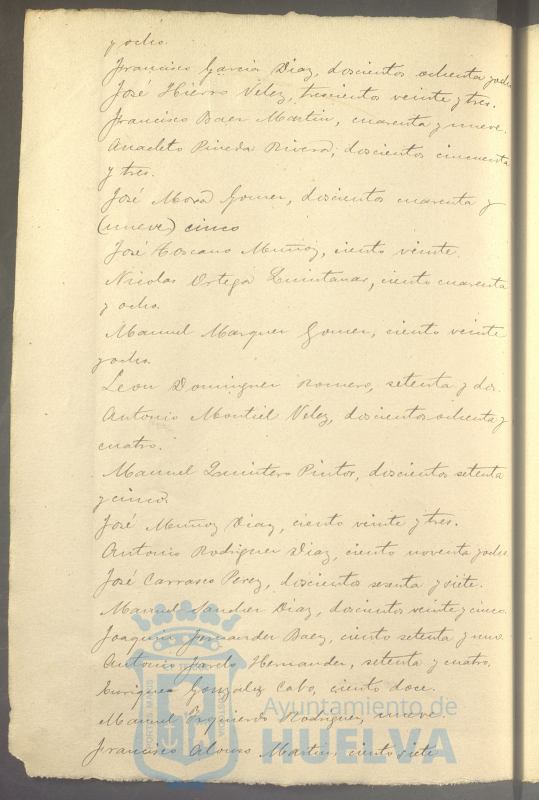 y ocho.
Francisco Garcia Diaz, doscientos ochenta y ocho
José Hierro Velez, trescientos veinte y tres.
Francisco Baez Martin, cuarenta y nueve.
Anacleto Pineda Rivera, doscientos cincuenta
y tres.
José Mora Gomez, doscientos cuarenta y
(nueve) cinco
José Toscano Muñoz, ciento veinte.
Nicolas Ortega Quintanar, ciento cuarenta
y ocho.
Manuel Marquez Gomez, ciento veinte
y ocho.
Leon Dominguez Romero, setenta y dos.
Antonio Montiel Velez, doscientos ochenta y
cuatro.
Manuel Quintero Pintor, doscientos setenta
y cinco.
José Muñoz Diaz, ciento veinte y tres.
Antonio Rodriguez Diaz, ciento noventa y ocho
José Carrasco Perez, doscientos sesenta y siete.
Manuel Sanchez Diaz, doscientos veinte y cinco.
Joaquin Fernandez Baez, ciento setenta y uno.
Antonio Hernandez, setenta y cuatro.
Enrique Gonzalez Cabo, ciento doce.
Manuel Izquierdo Rodriguez, nueve.
Francisco Alonso Martin, ciento siete
Ayuntamiento de
HUELVA